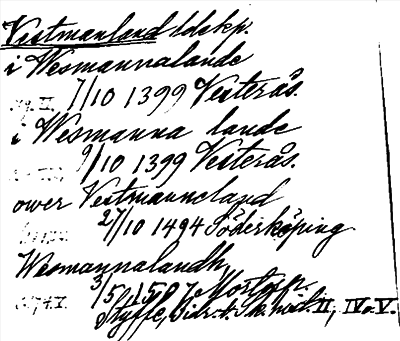 Vestmanland ldskp.
i Wesmannalande
7/10 1399 Vesterås.
i Wesmanna lande
9/10 1399 Vesterås.
ower Vestmanneland
27/10 1494 Söderköping
Wesmannalandh
3/5 1507
Styffe, Bidr. t. Sk. hist. II, IV o. V.